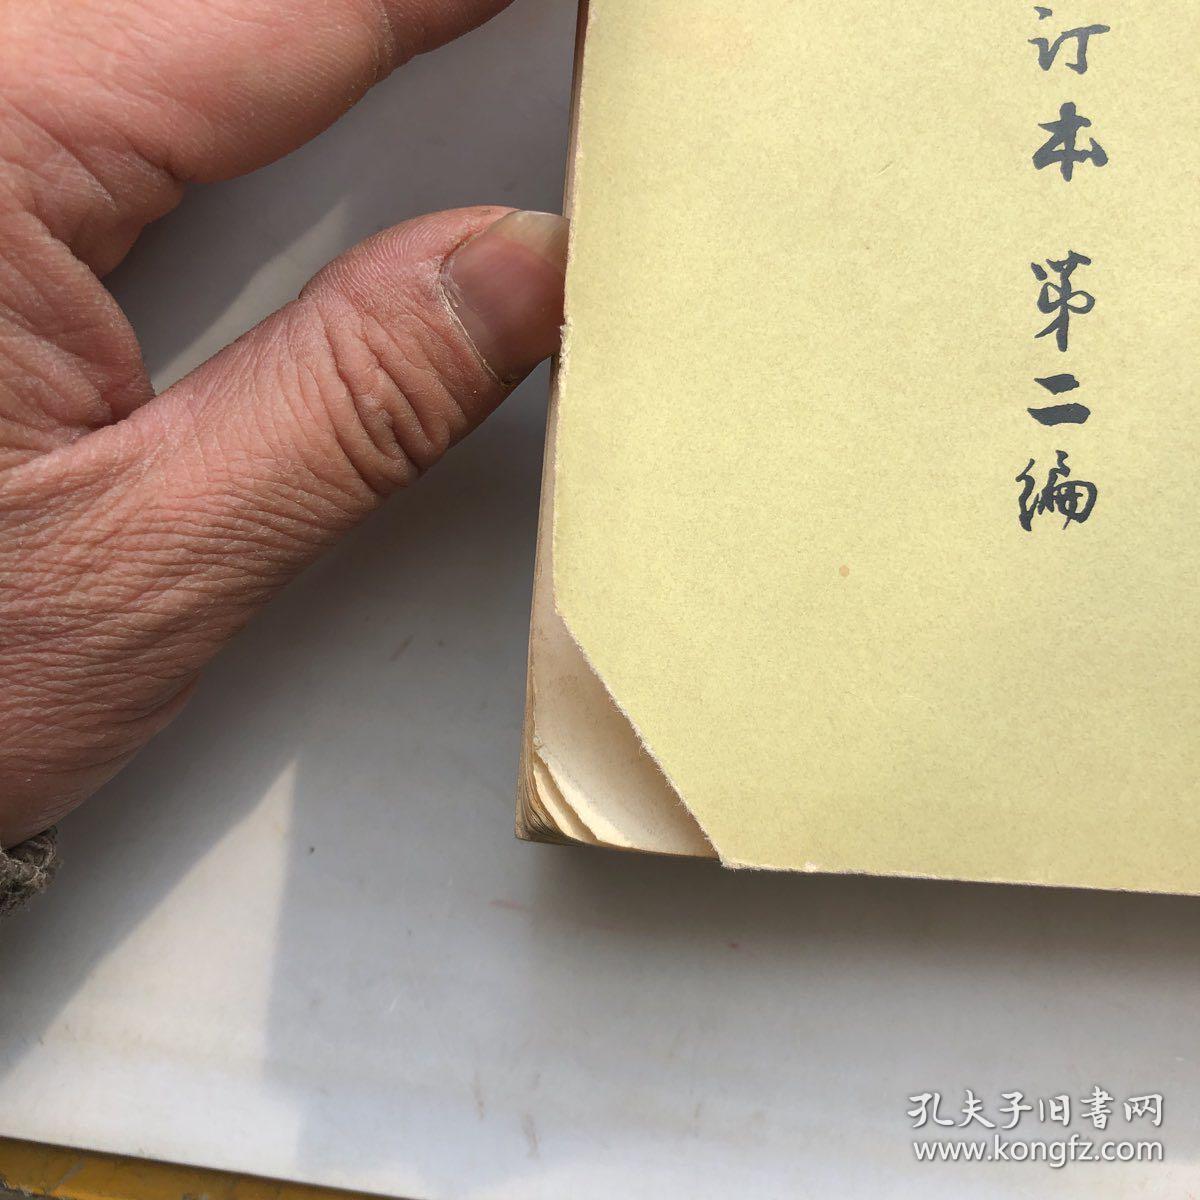 订本 第二编
孔夫子旧書网
www.kongfz.com